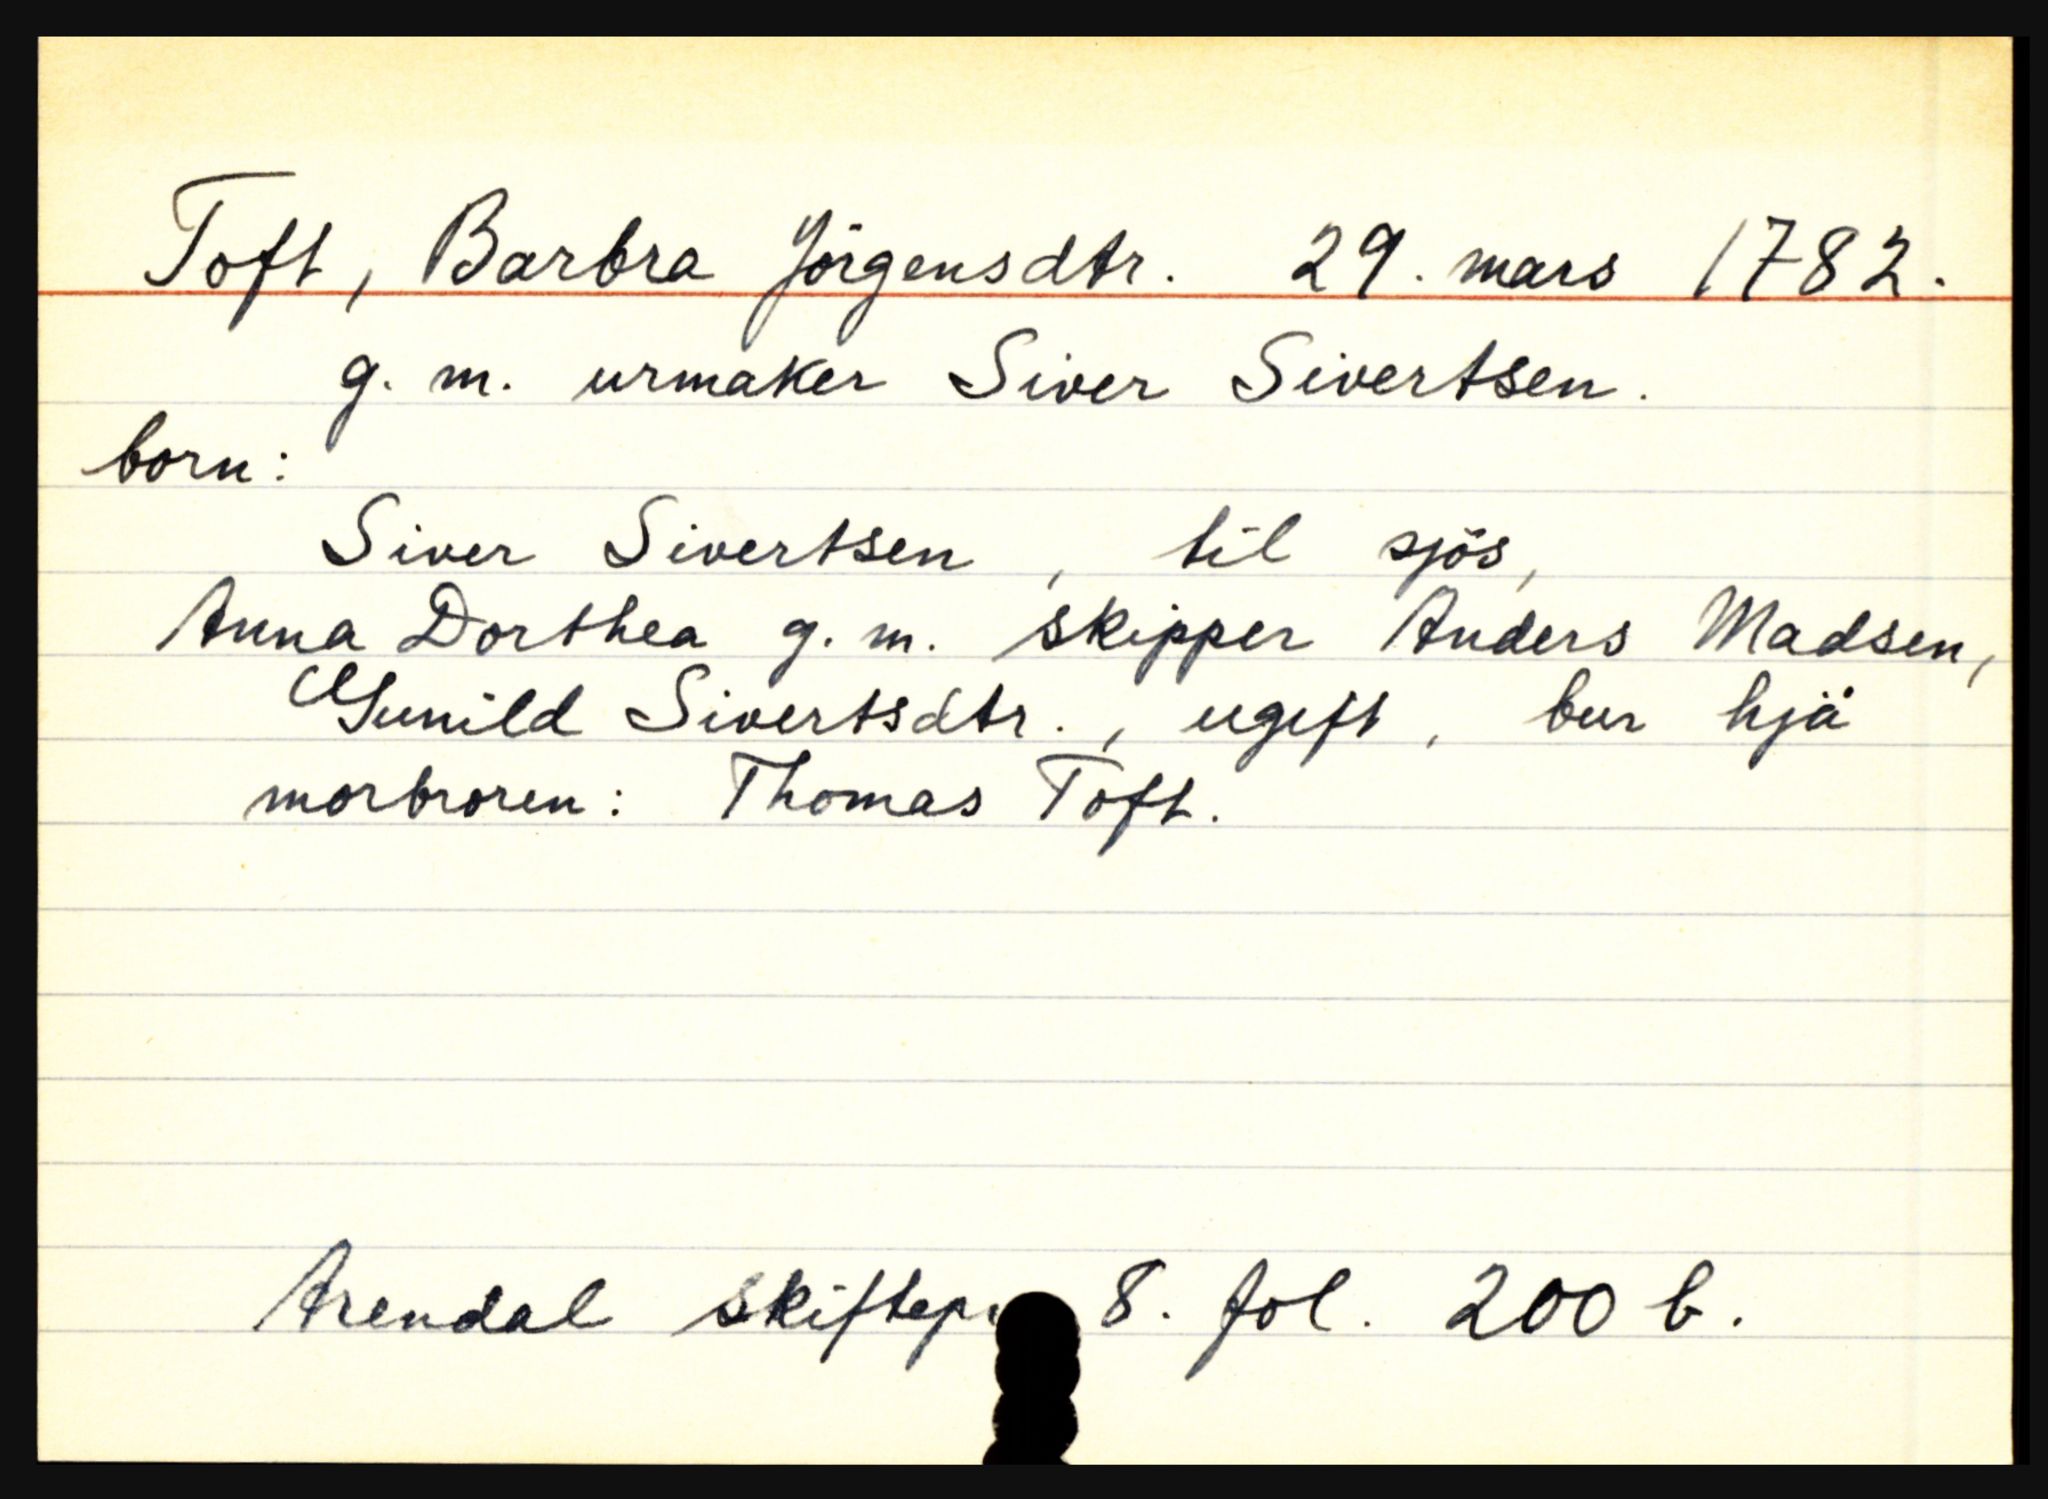 Toft, Barbra Jörgensdtr. 29. mars 1782.
g. m. urmaker Siver Sivertsen.
born:
Siver Sivertsen, til sjös,
Anna Dorthea g. m. skipper Anders Madsen,
Gunild Sivertsdtr., ugift, bur hjå
morbroren: Thomas Toft.
Arendal 8. fol. 200 b.